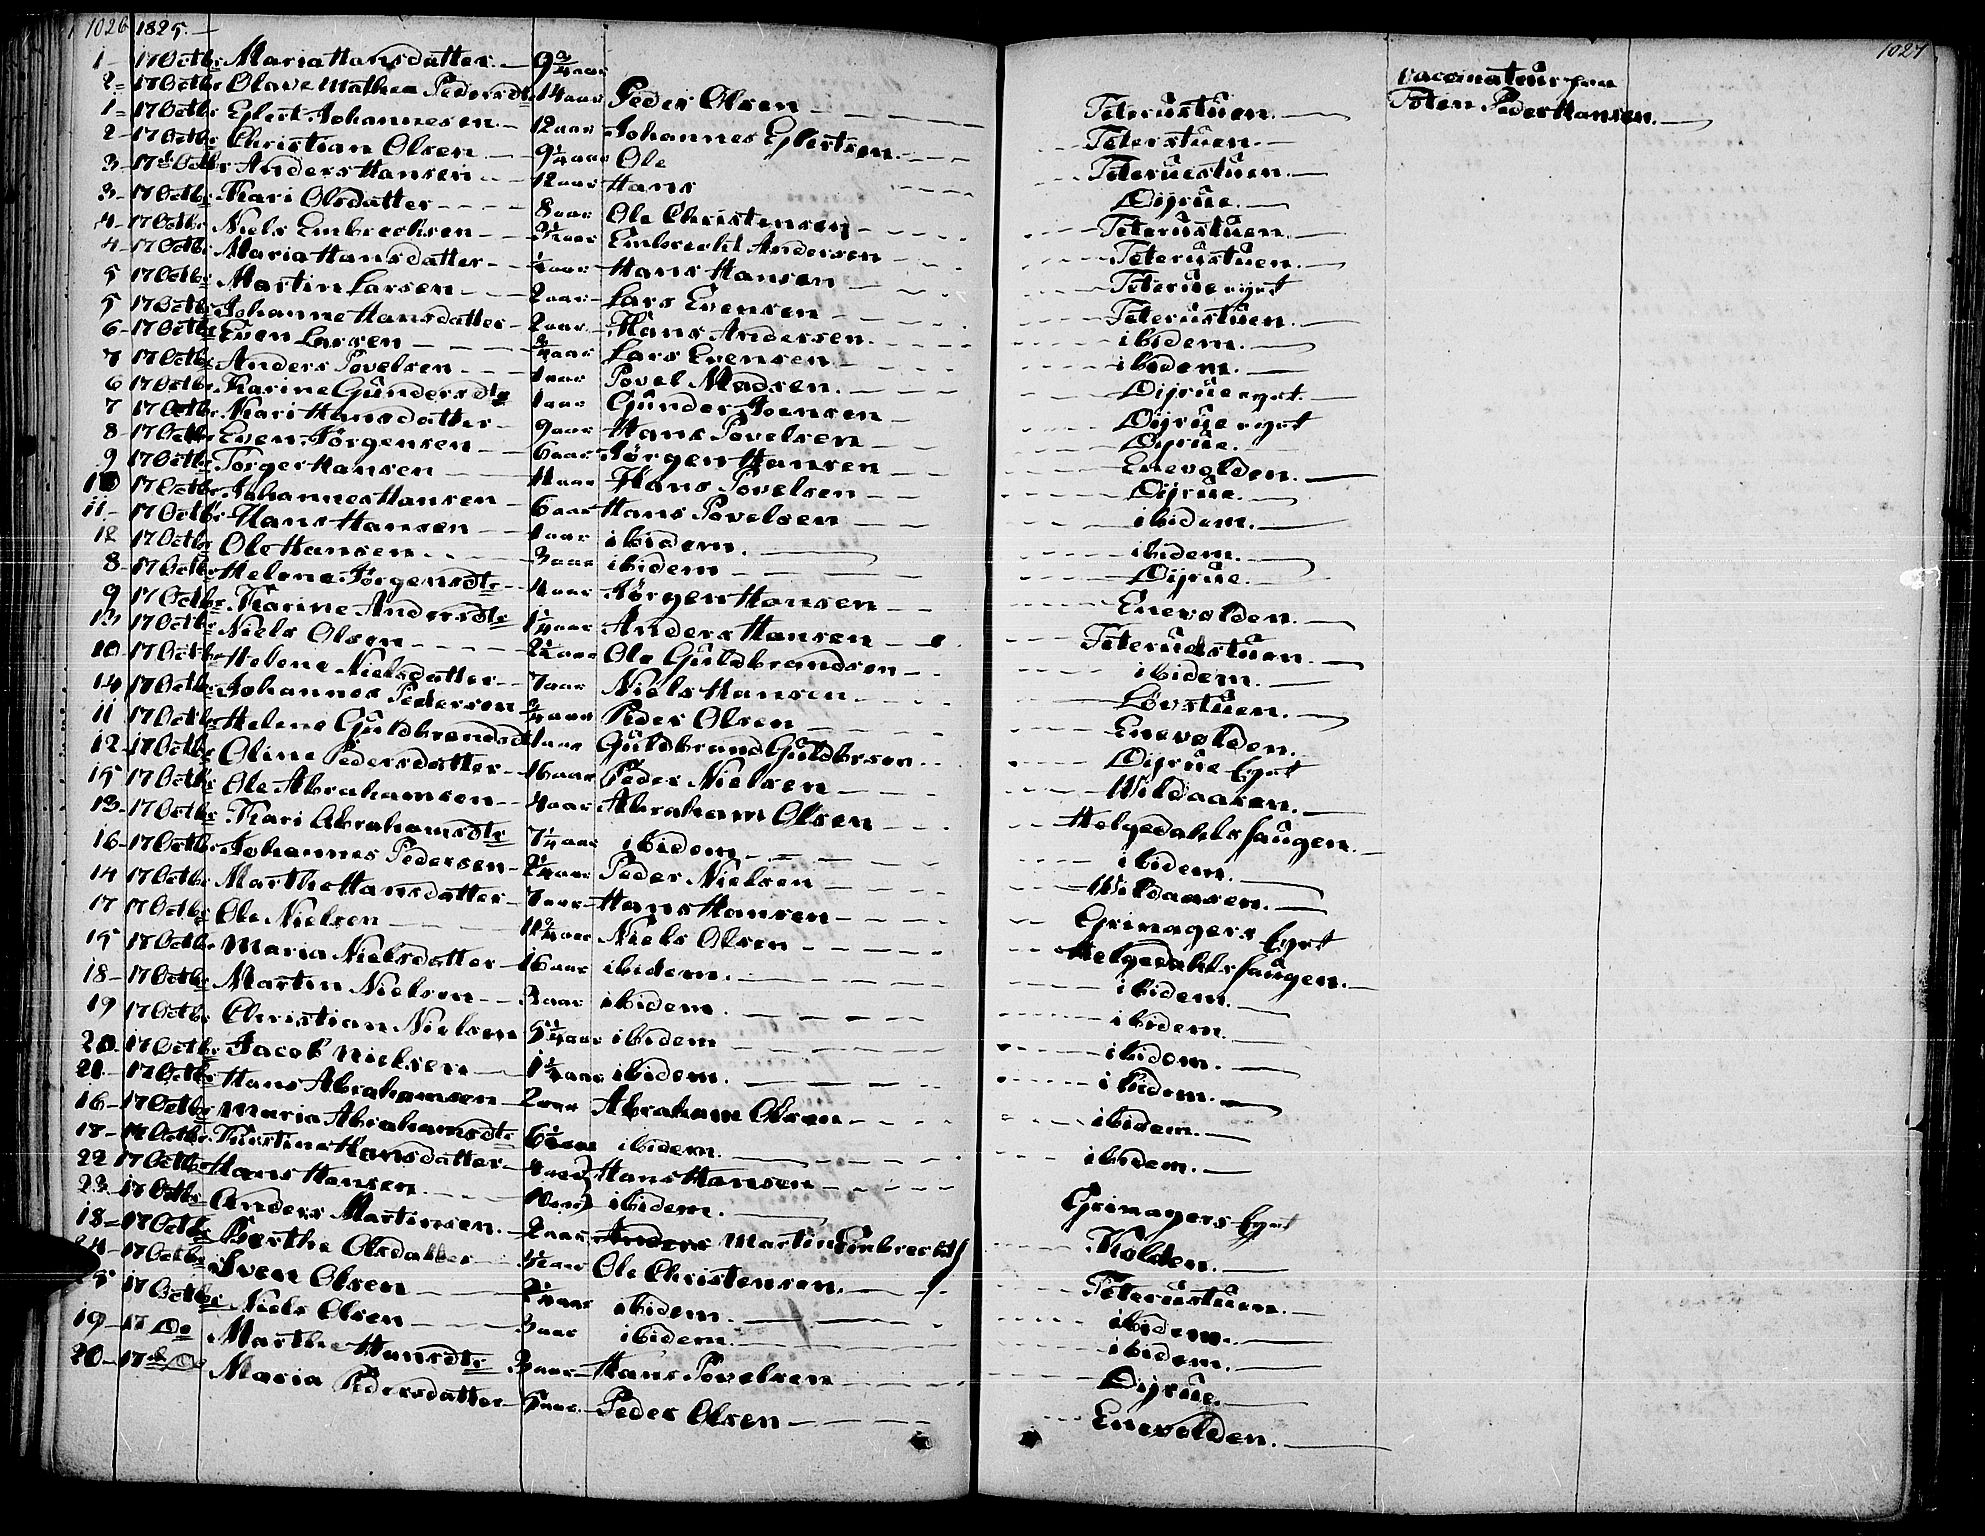 1026 1825.
1 - 17 Octbr Maria Hansdatter. 9 3/4 aar
2 - 17 Octbr Olave Mathea Pedersdtr 14 aar Peder Olsen
1 - 17 Octbr Eglert Johannesen 12 aar Johannes Eglertsen
2 - 17 Octbr Christian Olsen 9 1/4 aar Ole
3 - 17 Octbr Anders Hansen 12 aar Hans
3 - 17 Octbr Kari Olsdatter 8 aar Ole Christensen
4 - 17 Octbr Niels Embrechsen aar Embrecht Andersen
4 - 17 Octbr Maria Hansdatter aar Hans Hansen
5 17 Octbr Martin Larsen 2 aar Lars Evensen
5 17 Octbr Johanne Hansdatter 2 aar Hans Andersen
6 - 17 Octbr Even Larsen 3/4 aar Lars Evensen
7 17 Octbr Anders Povelsen 1 aar Povel Madsen
6 17 Octbr Karine Gundersdtr 1 aar Gunder Joensen
7 17 Octbr Kari Hansdatter 9 aar Hans Povelsen
8 - 17 Octbr Even Jørgensen 6 aar Jørgen Hansen
9 17 Octbr Torger Hansen 11 aar Hans Povelsen
10 17 Octbr Johannes Hansen 6 aar Hans Povelsen
11 - 17 Octbr Hans Hansen 1 aar ibidem.
12 17 Octbr Ole Hansen 3 aar ibidem
8 - 17 Octbr Helene Jørgensdtr 4 aar Jørgen Hansen
9 17 Octbr Karine Andersdtr 1 1/4 aar Anders Hansen
13 17 Octbr Niels Olsen aar Ole Guldbrandsen
10 - 17 Octbr Helene Nielsdatter 7 aar Niels Hansen
14 17 Octbr Johannes Pedersen 3/4 aar Peder Olsen
11 17 Octbr Helene Guldbrandsd 1 aar Guldbrand Guldbrsen
12 - 17 Octbr Oline Pedersdatter 16 aar Peder Nielsen
15 17 Octbr Ole Abrahamsen 4 aar Abraham Olsen
13 - 17 Octbr Kari Abrahamsdtr 7 1/4 aar ibidem
16 - 17 Octbr Johannes Pedersen 2 1/4 aar Peder Nielsen
14 17 Octbr Marthe Hansdatter 7 aar Hans Hansen
17 17 Octbr Ole Nielsen aar Niels Olsen
15 17 Octbr Maria Nielsdatter 16 aar ibidem.
18 - 17 Octbr Martin Nielsen 3 aar ibidem
19 17 Octbr Christian Nielsen 5 1/4 aar ibidem
20 - 17 Octbr Jacob Nielsen 1 1/4 aar ibidem.
21 17 Octbr Hans Abrahamsen 2 aar Abraham Olsen
16 - 17 Octbr Maria Abrahamsdtr aar ibidem.
17 - 17 Octbr Kirstine Hansdatter 4 aar Hans Hansen
22 17 Octbr Hans Hansen 10 aar ibidem.
23 - 17 Octbr Anders Martinsen. 2 aar Anders Martin Embrechts
18 - 17 Octbr Berthe Olsdatter aar Ole Christensen.
24 - 17 Octbr Sven Olsen aar ibidem.
25 17 Octbr Niels Olsen 3 aar ibidem.
19 - 17 De Marthe Hansdtr 3 aar Hans Povelsen
20 - 17 Maria Pedersdatter 5 aar Peder Olsen
1027
Vaccinateur paa
Teterustuen. Toten Peder Hansen.
Teterstuen.
Teteruestuen.
Dijrue.
Teterustuen.
Teterustuen.
Teterue eget
Teterustuen.
ibidem.
ibidem.
Dijrue eget.
Dijrue eget
Dijrue.
Enevolden.
Dijrue.
ibidem.
ibidem.
Dijrue.
Enevolden.
Teterudstuen.
ibidem.
Løvstuen.
Enevolden.
Dijrue Eget
Wildaasen.
Helgedahlshaugen.
ibidem.
Wildaasen.
Grimagers Eget
Helgedahlshaugen.
ibidem.
ibidem.
ibidem.
ibidem.
ibidem.
ibidem.
Grimagers Eget
Kolden.
Teterustuen.
ibidem.
ibidem.
Dijrue.
Enevolden.